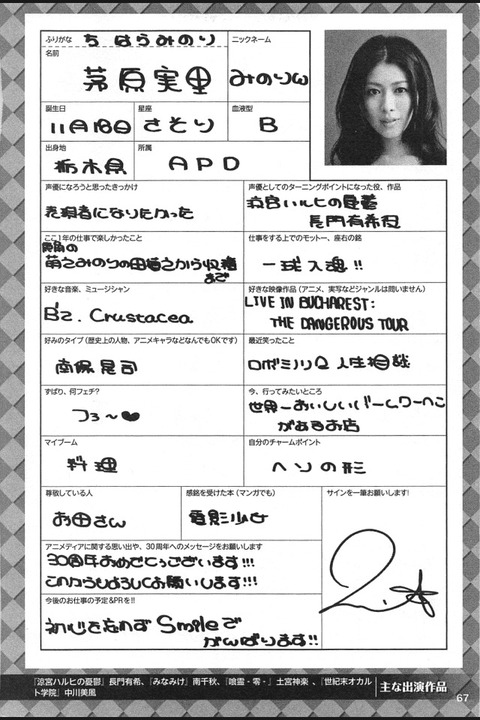 ふりがな ちはらみのり ニックネーム
名前 茅原実里 みのりん
誕生日 星座 血液型
11月18日 さそり B
出身地 所属
栃木県 APD
声優になろうと思ったきっかけ 声優としてのターニングポイントになった役、作品
表現者になりたかった 涼宮ハルヒの憂鬱
長門有希役
ここ1年の仕事で楽しかったこと 仕事をする上でのモットー、座右の銘
萌えみのりの田植えから収穫
まで
一球入魂!!
好きな音楽、ミュージシャン 好きな映像作品(アニメ、実写などジャンルは問いません)
B'z. Crustacea LIVE IN BUCHAREST:
THE DANGEROUS TOUR
好みのタイプ(歴史上の人物、アニメキャラなどなんでもOKです) 最近笑ったこと
南原晃司 ロボミノリQ 人生相談
ずばり、何フェチ? 今、行ってみたいところ
つぅ〜♥ 世界一おいしいバームクーヘン
があるお店
マイブーム 自分のチャームポイント
料理 ヘソの形
尊敬している人 感銘を受けた本(マンガでも) サインを一筆お願いします!
お母さん 電影少女
アニメディアに関する思い出や、30周年へのメッセージをお願いします
30周年おめでとうございます!!!
これからもよろしくお願いします!!!
今後のお仕事の予定&PRを!!
初心を忘れず Smileで
がんばります!!
『涼宮ハルヒの憂鬱』長門有希、『みなみけ』南千秋、『喰霊‐零‐』土宮神楽、『世紀末オカルト学院』中川美風
主な出演作品
67